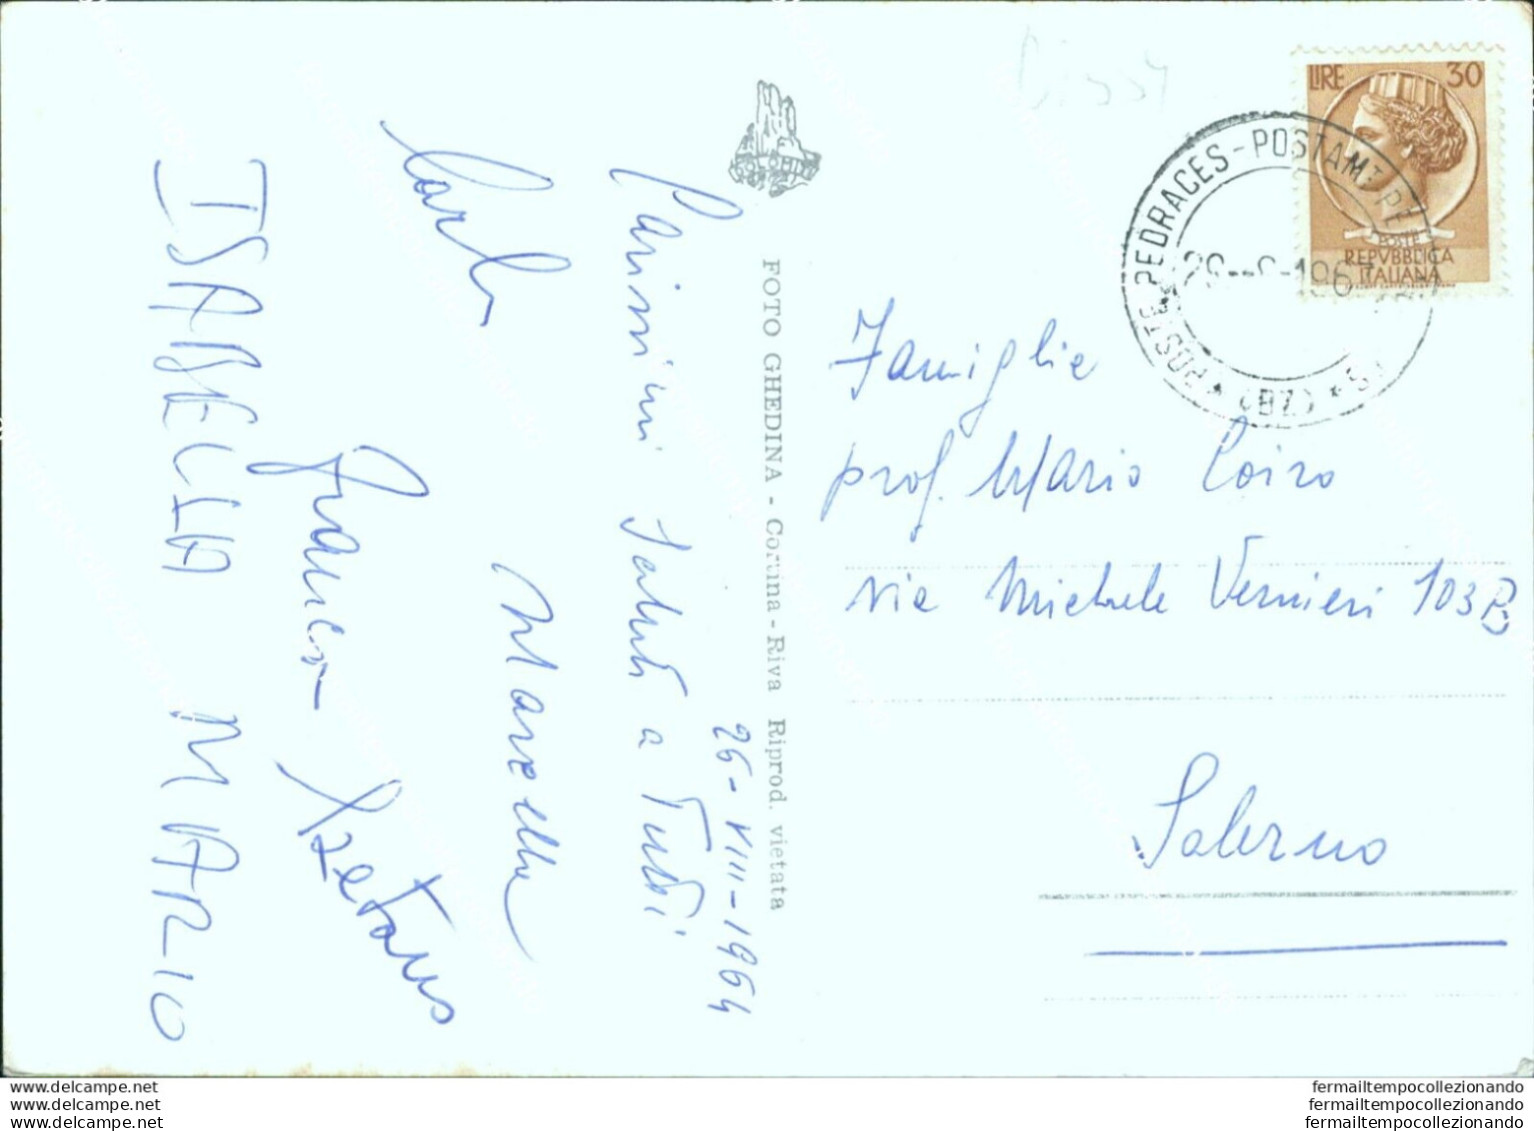 26-VIII-1964
Carissimi saluti a Tutti
Carlo
Marcella
Franco Gaetano
ISABELLA MARIO
FOTO GHEDINA - Cortina - Riva Riprod. vietata
LIRE 30
POSTE
REPVBBLICA
ITALIANA
POSTE PEDRACES - POSTAMT PE
(BZ)
Famiglia
prof. Mario Coiro
via Michele Vernieri 103
Salerno
www.delcampe.net
www.delcampe.net
www.delcampe.net
fermailtempocollezionando
fermailtempocollezionando
fermailtempocollezionando